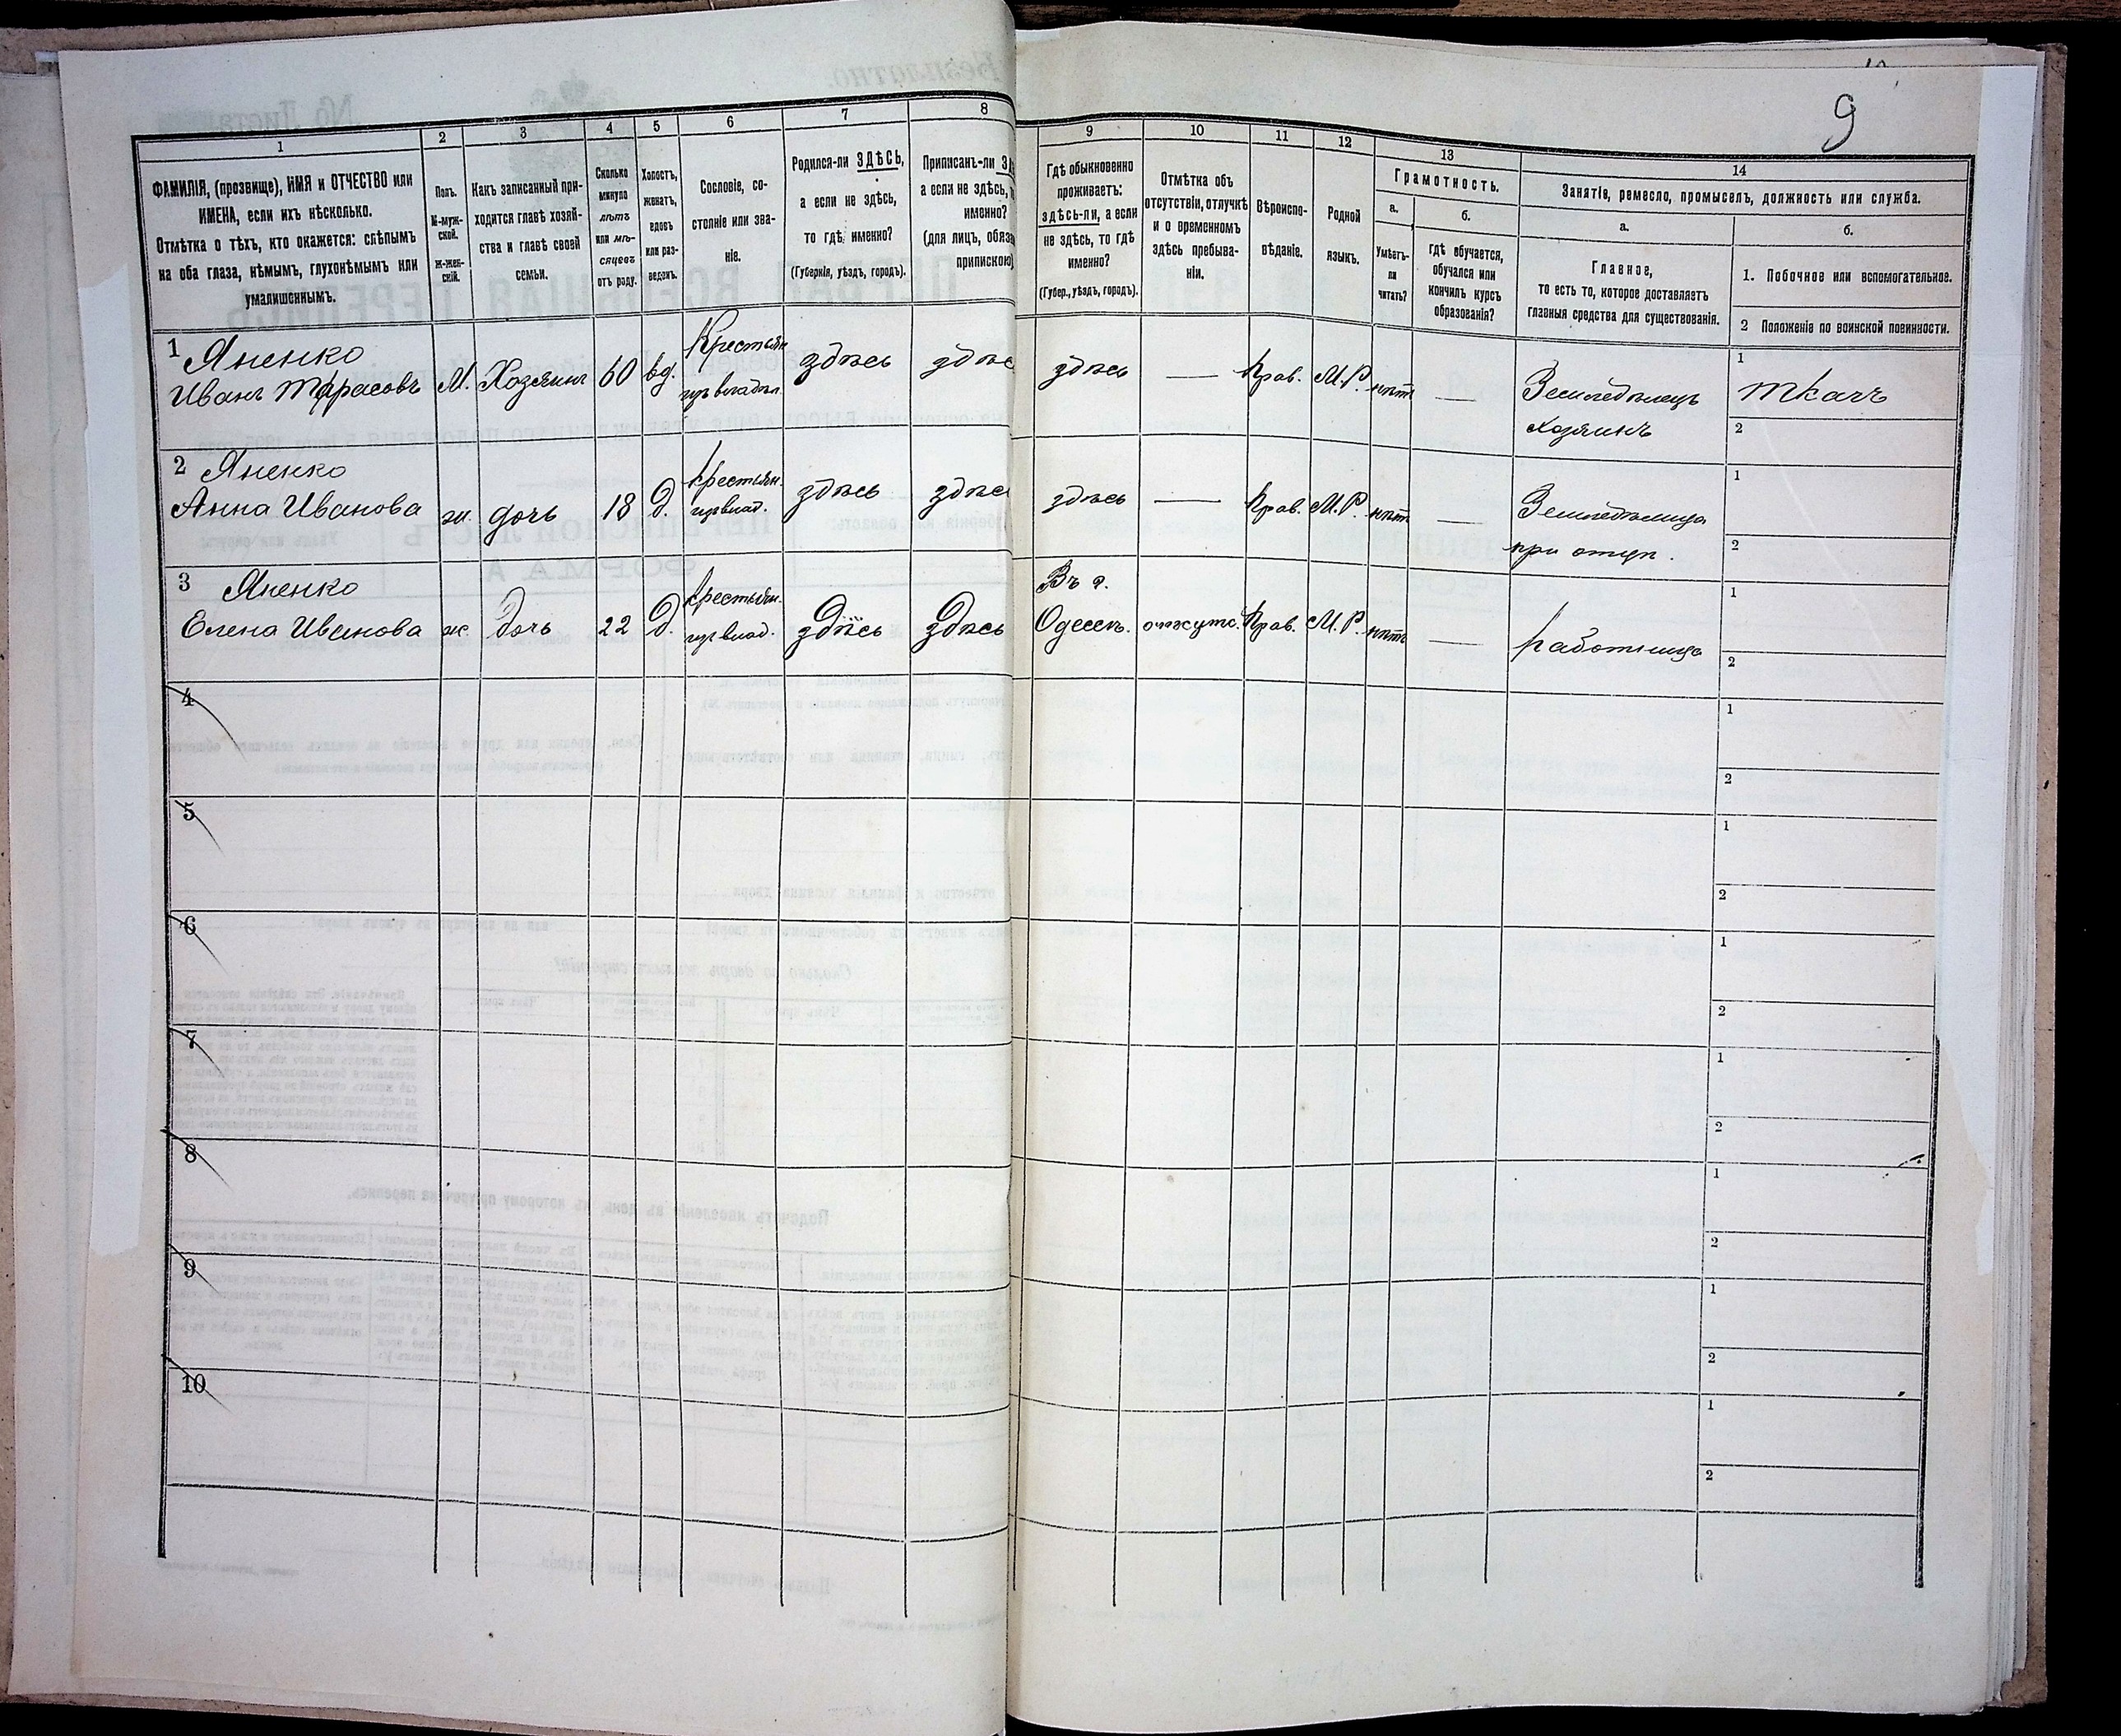 9
1
2
3
4
5
6
7
8
9
10
11
12
13
14
ФАМИЛІЯ, (прозвище), ИМЯ и ОТЧЕСТВО или
ИМЕНА, если ихъ нѣсколько.
Отмѣтка о тѣхъ, кто окажется: слѣпымъ
на оба глаза, нѣмымъ, глухонѣмымъ или
умалишеннымъ.
Полъ.
М-муж-
ской.
Ж-жен-
скій.
Какъ записанный при-
ходится главѣ хозяй-
ства и главѣ своей
семьи.
Сколько
минуло
лѣтъ
или мѣ-
сяцевъ
отъ роду.
Холостъ,
женатъ,
вдовъ
или раз-
веденъ.
Сословіе, со-
стояніе или зва-
ніе.
Родился-ли ЗДѢСЬ,
а если не здѣсь,
то гдѣ именно?
(Губернія, уѣздъ, городъ).
Приписанъ-ли
а если не здѣсь,
именно?
(для лицъ,
припискою)
Гдѣ обыкновенно
проживаетъ:
здѣсь-ли, а если
не здѣсь, то гдѣ
именно?
(Губер., уѣздъ, городъ).
Отмѣтка объ
отсутствіи, отлучкѣ
и о временномъ
здѣсь пребыва-
ніи.
Вѣроиспо-
вѣданіе.
Родной
языкъ.
Грамотность.
а.
Умѣетъ-
ли
читать?
б.
гдѣ обучается,
обучался или
кончилъ курсъ
образованія?
Занятіе, ремесло, промыселъ, должность или служба.
а.
Главное,
то есть то, которое доставляетъ
главныя средства для существованія.
б.
1. Побочное или вспомогательное.
2 Положеніе по воинской повинности.
1 Яненко
Иванъ Тарасовъ
М.
Хозяинъ
60
вд.
Крестьян
здѣсь
здѣс
здѣсь
—
Прав.
М.Р.
нѣтъ
—
Земледѣлецъ
хозяинъ
1
ткачъ
2
2 Яненко
Анна Иванова
ж.
дочь
18
д.
крестьян.
здѣсь
здѣс
здѣсь
—
Прав.
М.Р.
нѣтъ
—
при отцѣ.
1
2
3 Яненко
Елена Иванова
ж.
дочь
22
д.
крестьян.
здѣсь
здѣсь
Въ г.
Одессѣ.
отсутс.
Прав.
М.Р.
нѣтъ
—
работница
1
2
4
1
2
5
1
2
6
1
2
7
1
2
8
1
2
9
1
2
10
1
2